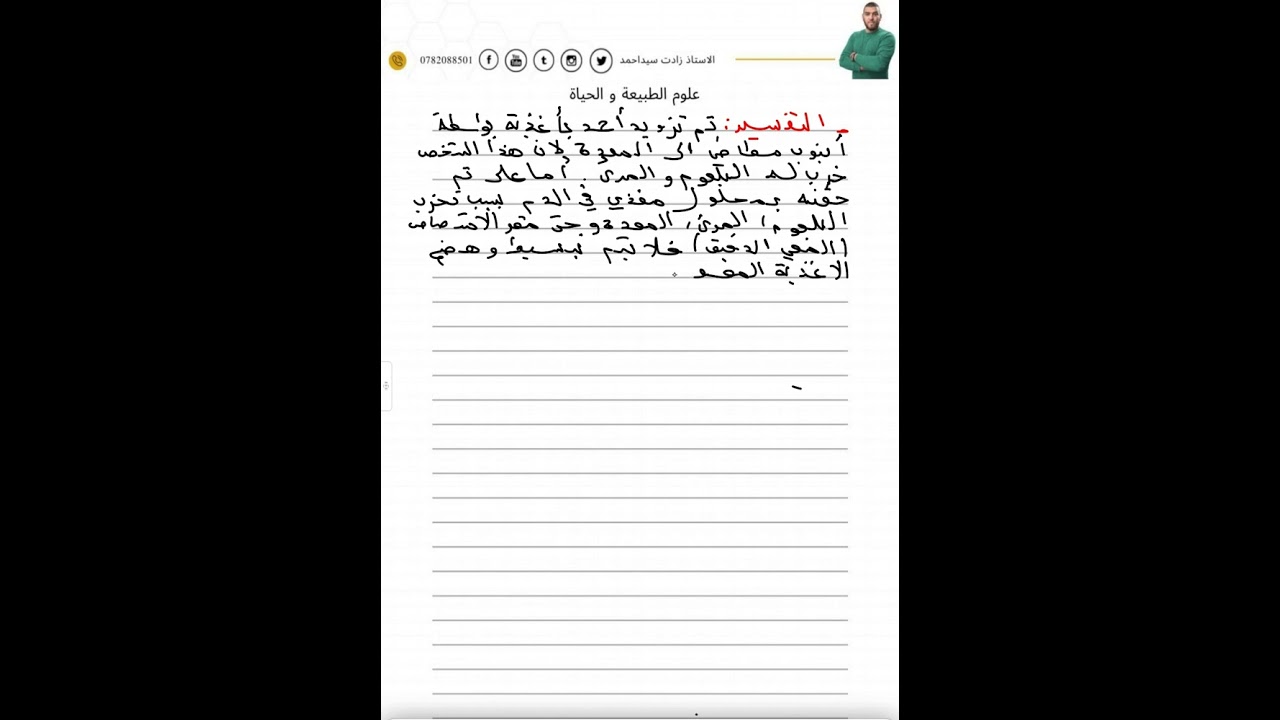 الاستاذ زادت سيداحمد 0782088501
علوم الطبيعة و الحياة
- التفسير: تم تزويد أحمد بأغذية بواسطة
أنبوب مطاطي الى المعدة لان هذا الشخص
خرب له البلعوم و المرئ. أما علي تم
حقنه بمحلول مغذي في الدم بسبب تخرب
البلعوم، المرئ، المعدة و حتى مقر الامتصاص
(المعي الدقيق) فلا يتم تبسيط و هضم
الاغذية